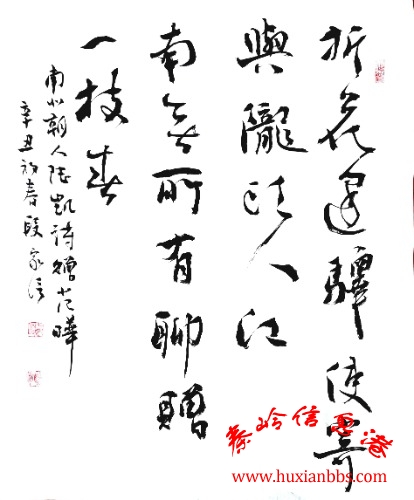 折花逢驛使寄
與隴頭人江
南無所有聊贈
一枝春
南北朝人陸凱詩贈范曄
辛丑初春段家信
秦岭信息港
www.huxianbbs.com